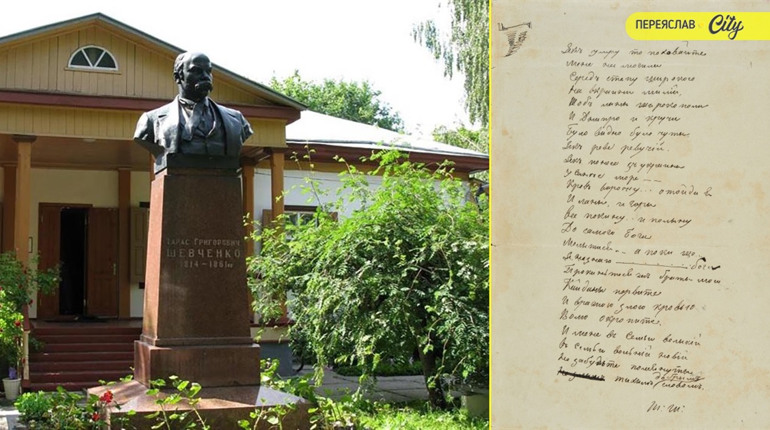 ПЕРЕЯСЛАВ City
ТАРАС ГРИГОРОВИЧ
ШЕВЧЕНКО
1814–1861
Якъ умру то поховайте
Мене на могили
Середъ степу широкого
На Вкраини милій,
Щобъ лани широкополи
И Днипро и кручи
Було видно було чути
Якъ реве ревучій.
Якъ понесе зъ украини
У синєе море
Кровъ ворожу.. отойди я
И лани, и гори
Все покину и полыну
До самого Бога
Молитися... а поки що
Я не знаю Бога
Кайданы порвите
И вражою злою кровью
Волю окропите.
И мене въ семьи великій
Въ семьи вольній новій
Не забудьте помянути
тихимъ словомъ.